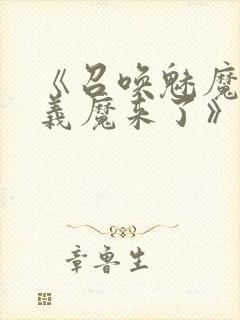 《召唤魅魔
义魔来了》
章鲁生